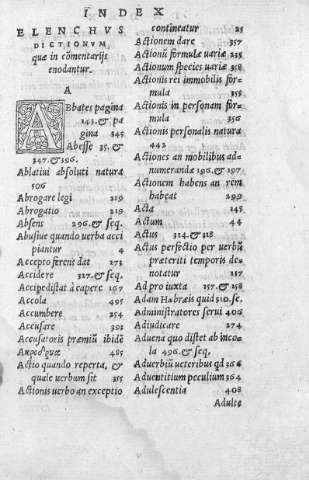 INDEX
ELENCHVS
DICTIONVM,
quæ in cõmentarijs
enodantur.
A
ABbates pagina
143. & pa
gina 345
Abesse 35. &
347. & 196.
Ablatiui absoluti natura
506
Abrogare legi 219
Abrogatio 219
Absens 296. & seq.
Abusiue quando uerba acci
piantur 4
Accepto ferens dat 273
Accidere 327. & seq.
Accipe distat à capere 167
Accola 495
Accumbere 254
Accusare 392
Accusatoris præmiũ ibidẽ
485
Actio quando reperta, &
quale uerbum sit 355
Actionis uerbo an exceptio
contineatur 25
Actionem dare 357
Actionũ formulæ uariæ 235
Actionum species uariæ 358
Actionis rei immobilis for-
mula 355
Actionis in personam for-
mula 356
Actionis personalis natura
442
Actiones an mobilibus ad-
numerandæ 196. & 197
Actionem habens an rem
habeat 299
Acta 145
Actum 44
Actus 314. & 318
Actus perfectio per uerbũ
præteriti temporis de-
notatur 257
Ad pro iuxta 157. & 158
Adam Hæbræis quid 510. se.
Administratores serui 406
Adiudicare 274
Aduena quo distet ab inco-
la 496. & seq.
Aduerbiũ ueteribus qd 364
Aduentitium peculium 364
Adulescentia 408
Adulte